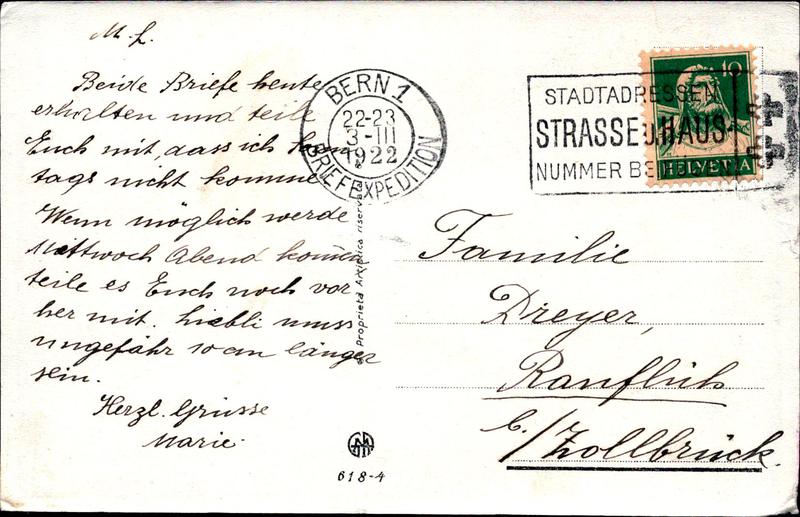 M. L.
Beide Briefe heute
erhalten und teile
Euch mit, dass ich
tags nicht komme
Wenn möglich werde
Mittwoch Abend komm
teile es Euch noch vor
her mit. muss
ungefähr 10 cm länger
sein.
Herzl. Grüsse
Marie.
BERN 1
22-23
3-III
1922
BRIEFEXPEDITION
STADTADRESSEN
STRASSE HAUS-
NUMMER
10
HELVETIA
Proprietà Artistica riservata
Familie
Dreyer,
Ranflüh
b./Zollbrück.
618-4